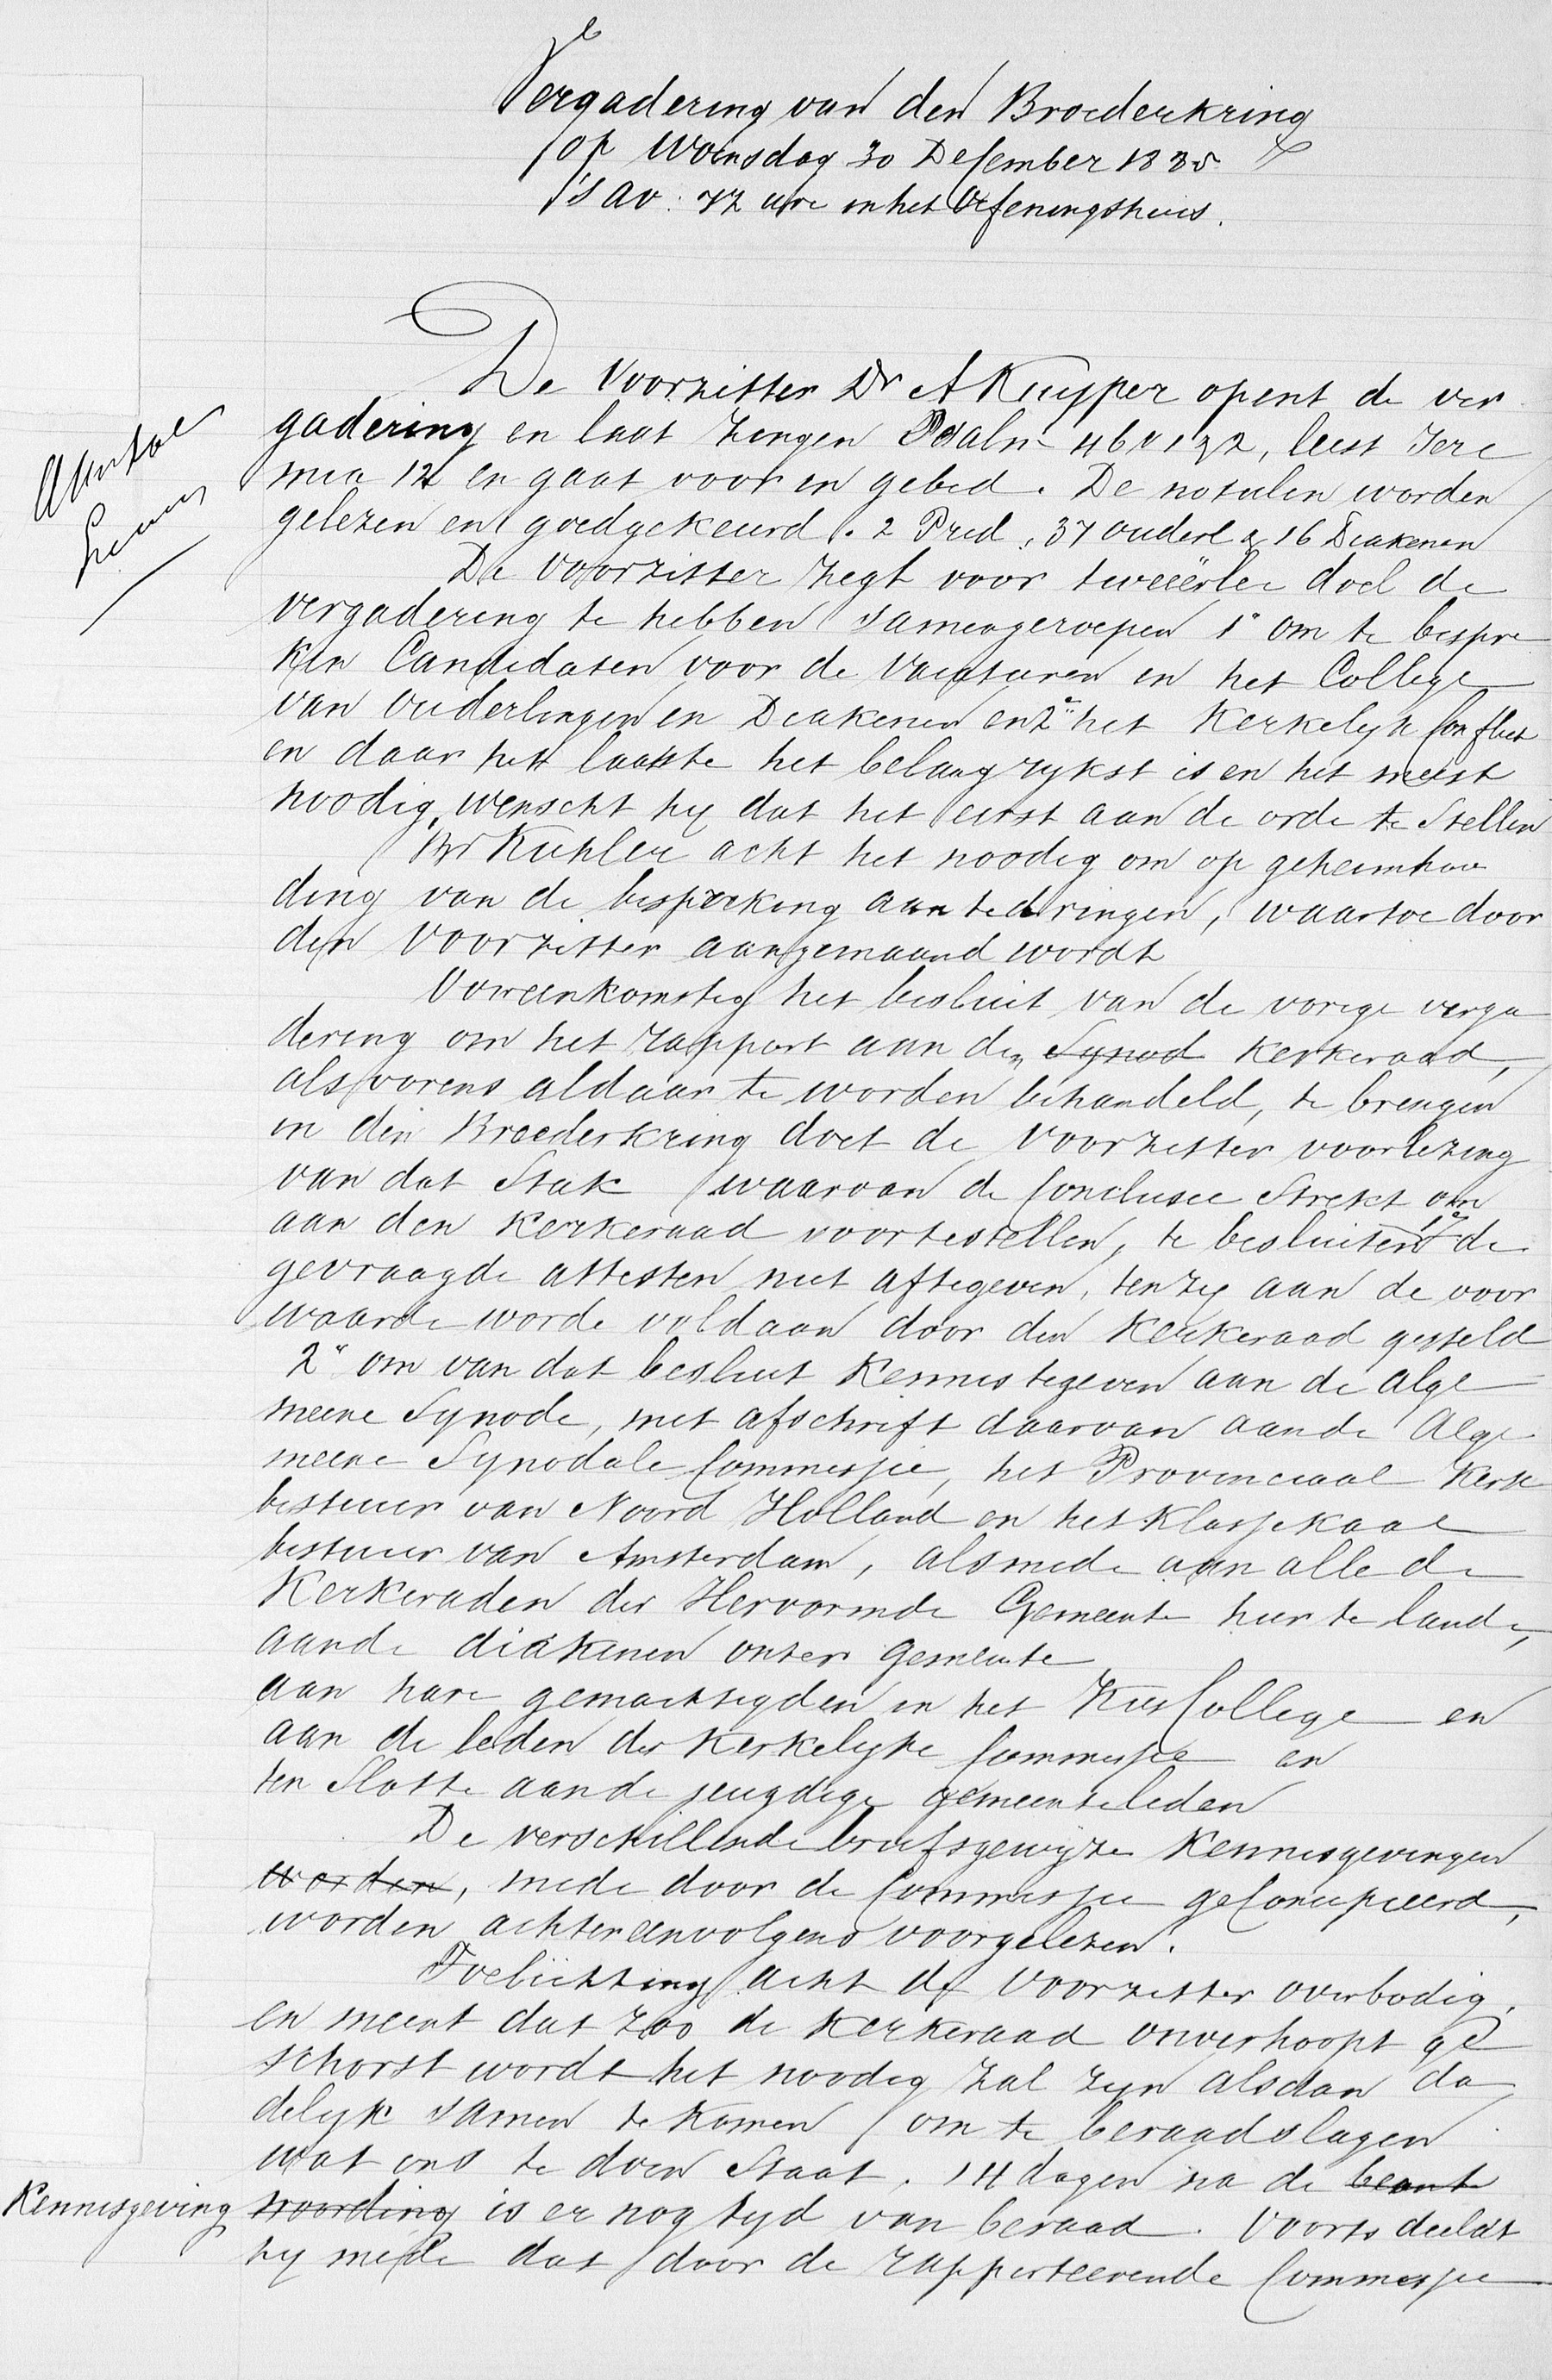 Vergadering van den Broederkring
op Woensdag 30 Desember 1885
's av: 7½ ure in het Oefeningshuis.
De Voorzitter Dr A Kuyper opent de ver
gadering en laat zingen Psalm 46 v 1 & 2, leest Jere
mia 12 en gaat voor in gebed. De notulen worden
gelezen en goedgekeurd. 2 Pred, 37 ouderl & 16 Diakenen
De Voorzitter zegt voor tweeërlei doel de
vergadering te hebben samengeroepen 1° om te bespre
ken Candidaten voor de Vacaturen in het College
van Ouderlingen en Diakenen en 2e het Kerkelyk Conflict
en daar het laatste het belangrykst is en het meest
noodig, wenscht hy dat het eerst aan de orde te stellen
Br Kuhler acht het noodig om op geheimhou
ding van de bespreking aan te dringen, waartoe door
den Voorzitter aangemaand wordt
Overeenkomstig het besluit van de vorige verga
dering om het rapport aan den Synod Kerkeraad,
alsvorens aldaar te worden behandeld, te brengen
in den Broederkring doet de voorzitter voorlezing
van dat Stuk waarvan de Conclusie Strekt om
aan den Kerkeraad voortestellen, te besluiten 1e de
gevraagde attesten niet aftegeven, tenzy aan de voor
waarde worde voldaan door den Kerkeraad gesteld
2° om van dat besluit Kennistegeven aan de Alge
meene Synode, met afschrift daarvan aande Alge
meene Synodale Commissie, het Provinciaal Kerk
bestuur van Noord Holland en het Klassikaal
bestuur van Amsterdam, alsmede aan alle de
Kerkeraden der Hervormde Gemeente hier te lande,
aande diakenen onzer gemeente
aan hare gemachtigden in het KiesCollege en
aan de leden der Kerkelyke Commissie en
ten Slotte aande jeugdige gemeenteleden
De verschillende briefsgewyze Kennisgevingen
worden, mede door de Commissie geConcipieerd,
worden achtereenvolgens voorgelezen.
Toelichting acht de Voorzitter overbodig,
en meent dat zoo de Kerkeraad onverhoopt ge
schorst wordt het noodig zal zyn alsdan da
delyk samen te komen om te beraadslagen
wat ons te doen Staat. 14 dagen na de beant
Kennisgeving woording is er nog tyd van beraad. Voorts deeldt
hy mede dat door de rapporteerende Commissie